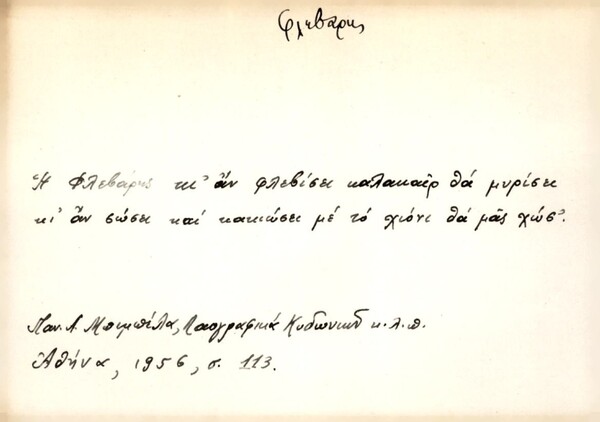 Φλεβάρης
Ἡ Φλεβάρης κι' ἄν φλεβίσει καλακαῖρ θά μυρίσει
κι' ἄν σώσει καί κακιώσει μέ τό χιόνι θά μᾶς χώσ'.
Παν. Λ. Μπιμπέλα, Λαογραφικά Κυδωνιῶν κ.λ.π.
Ἀθήνα, 1956, σ. 113.